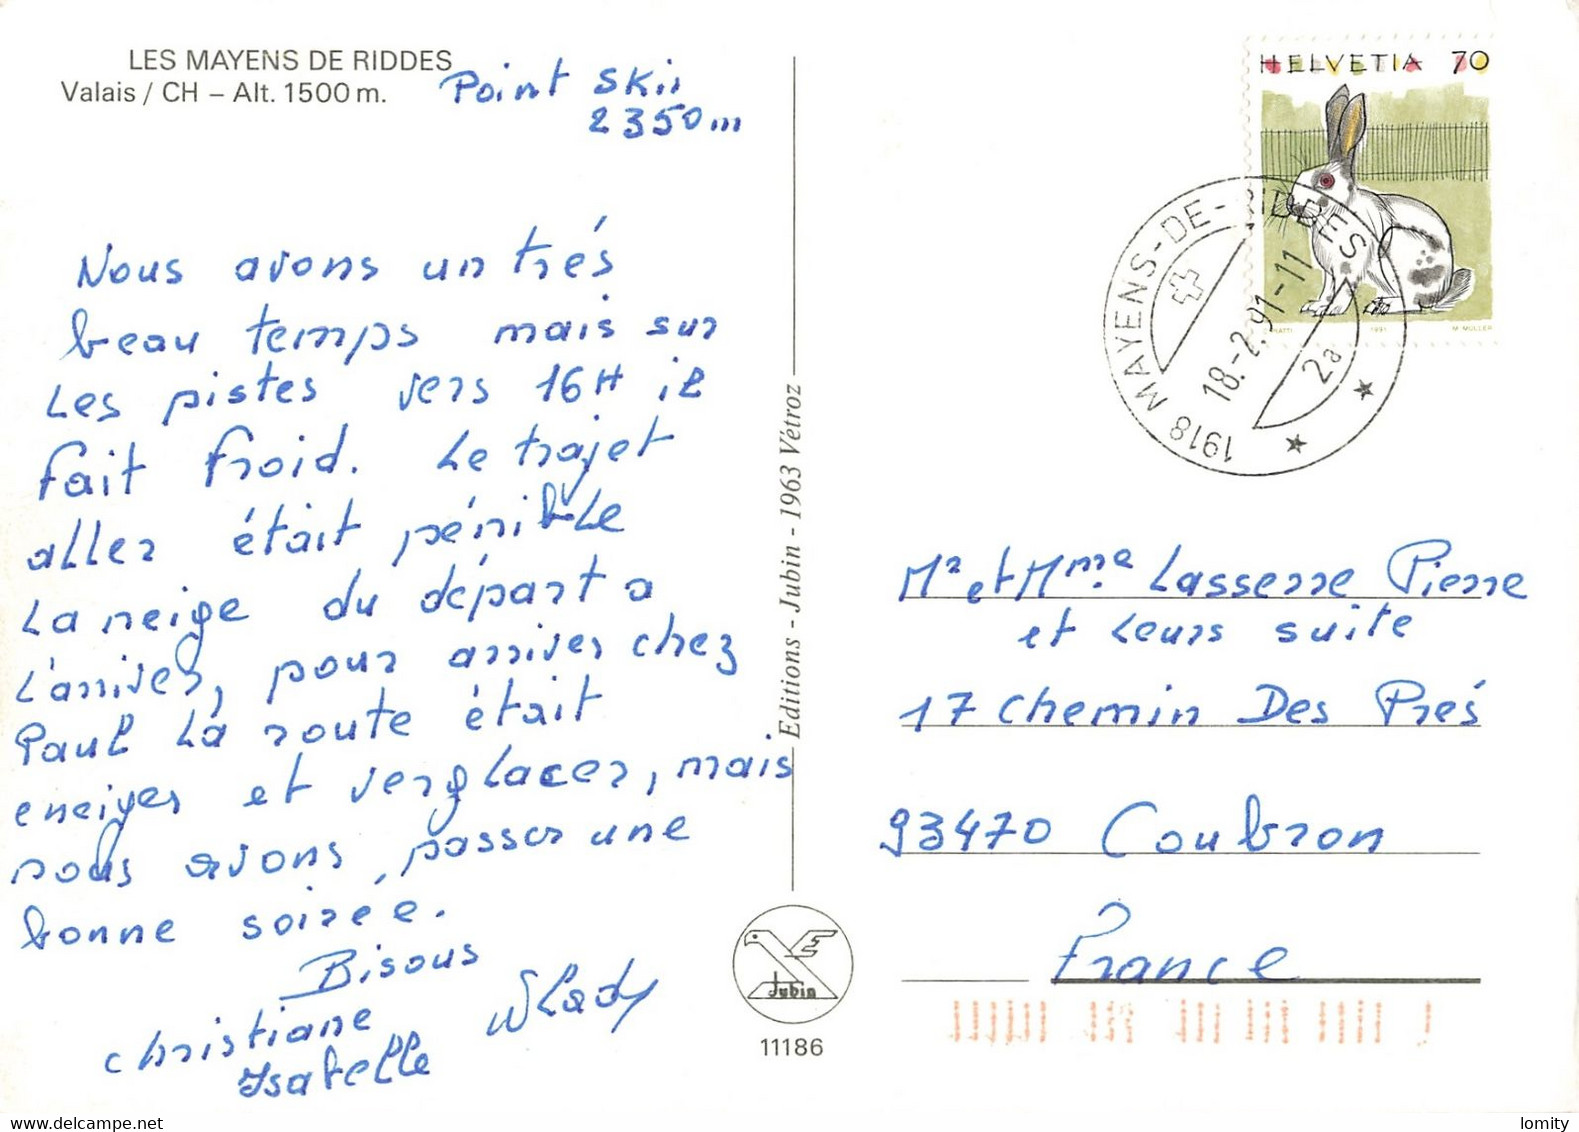 LES MAYENS DE RIDDES
Valais / CH – Alt. 1500 m.
Point Skii
2350m
Nous avons un trés
beau temps mais sur
Les pistes vers 16H il
fait froid. Le trajet
aller était pénible
La neige du départ a
L'arriver, pour arriver chez
Paul La route était
eneiger et verglacer, mais
nous avons passer une
bonne soirée.
Bisous
Christiane
Wlady
Isabelle
Editions - Jubin - 1963 Vétroz
Jubin
11186
HELVETIA 70
1991
M. MULLER
1918 MAYENS-DE-RIDDES
18.-2.91-11
2a
Mr et Mme Lasserre Pierre
et Leurs suite
17 Chemin Des Prés
93470 Coubron
France
lomity